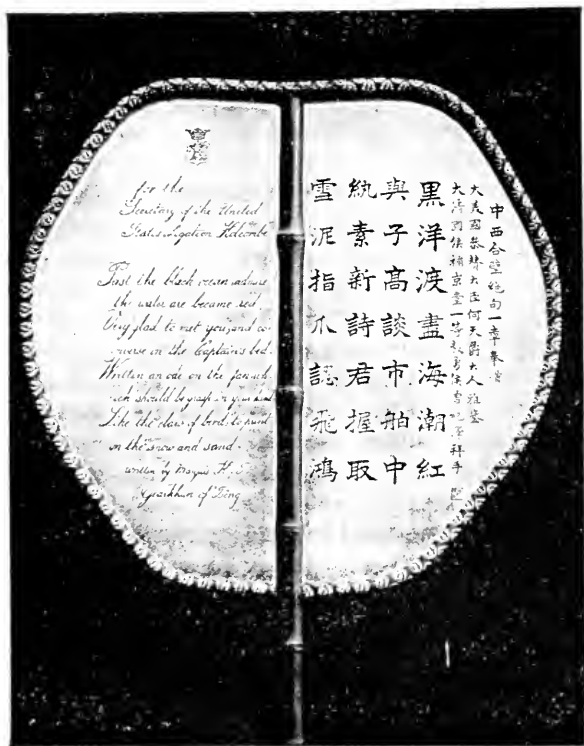 for the
Secretary of the United
States Legation Holcombe
Past the black ocean
the water are became red.
Very glad to met you and co
nverse in the Captain's bed.
Written an ode on the fan wh
ich should be grasp in your hand
Like the claw of birds to print
on the snow and sand
written by Marquis H. S.
of Tseng
中西合璧絕句一章奉
大美國叅贊大臣何天爵大人雅鑒
大清國候補京堂一等毅勇侯曾紀澤拜手
黑洋渡盡海潮紅
與子高談市舶中
紈素新詩君握取
雪泥指爪認飛鴻